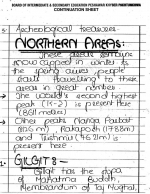 BOARD OF INTERMEDIATE & SECONDARY EDUCATION PESHAWAR KHYBER PAKHTUNKHWA
CONTINUATION SHEET
Archeological treasures.
NORTHERN AREAS:
These areas remain
snow capped in winter to
the spring areas, people
start travelling to these
areas in great numbers.
The world's second highest
peak (K-2) is present here
(8611 meters)
Other peaks Nanga Parbat
(8126 m), Rakaposhi (7788m)
and Tirichmir (7690m) is
present here.
GILGIT:-
Gilgit has the
of Mahatma Buddh,
Memorandum of Taj Mughal,